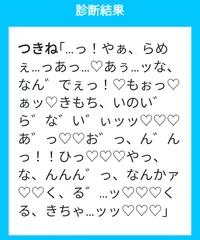 診断結果
つきね「…っ！やぁ、らめ
ぇ…っあっ…♡あぅ…ッな、
なん゛でぇっ！♡もぉっ♡
ぁッ♡きもち、いのい゛
ら゛な゛い゛ぃッッ♡♡♡
あ゛っ♡♡お゛っ、ん゛ん
っ！！ひっ♡♡♡やっ、
な、んんん゛っ、なんかァ
♡♡く、る゛…ッ♡♡♡く
る、きちゃ…ッッ♡♡♡」